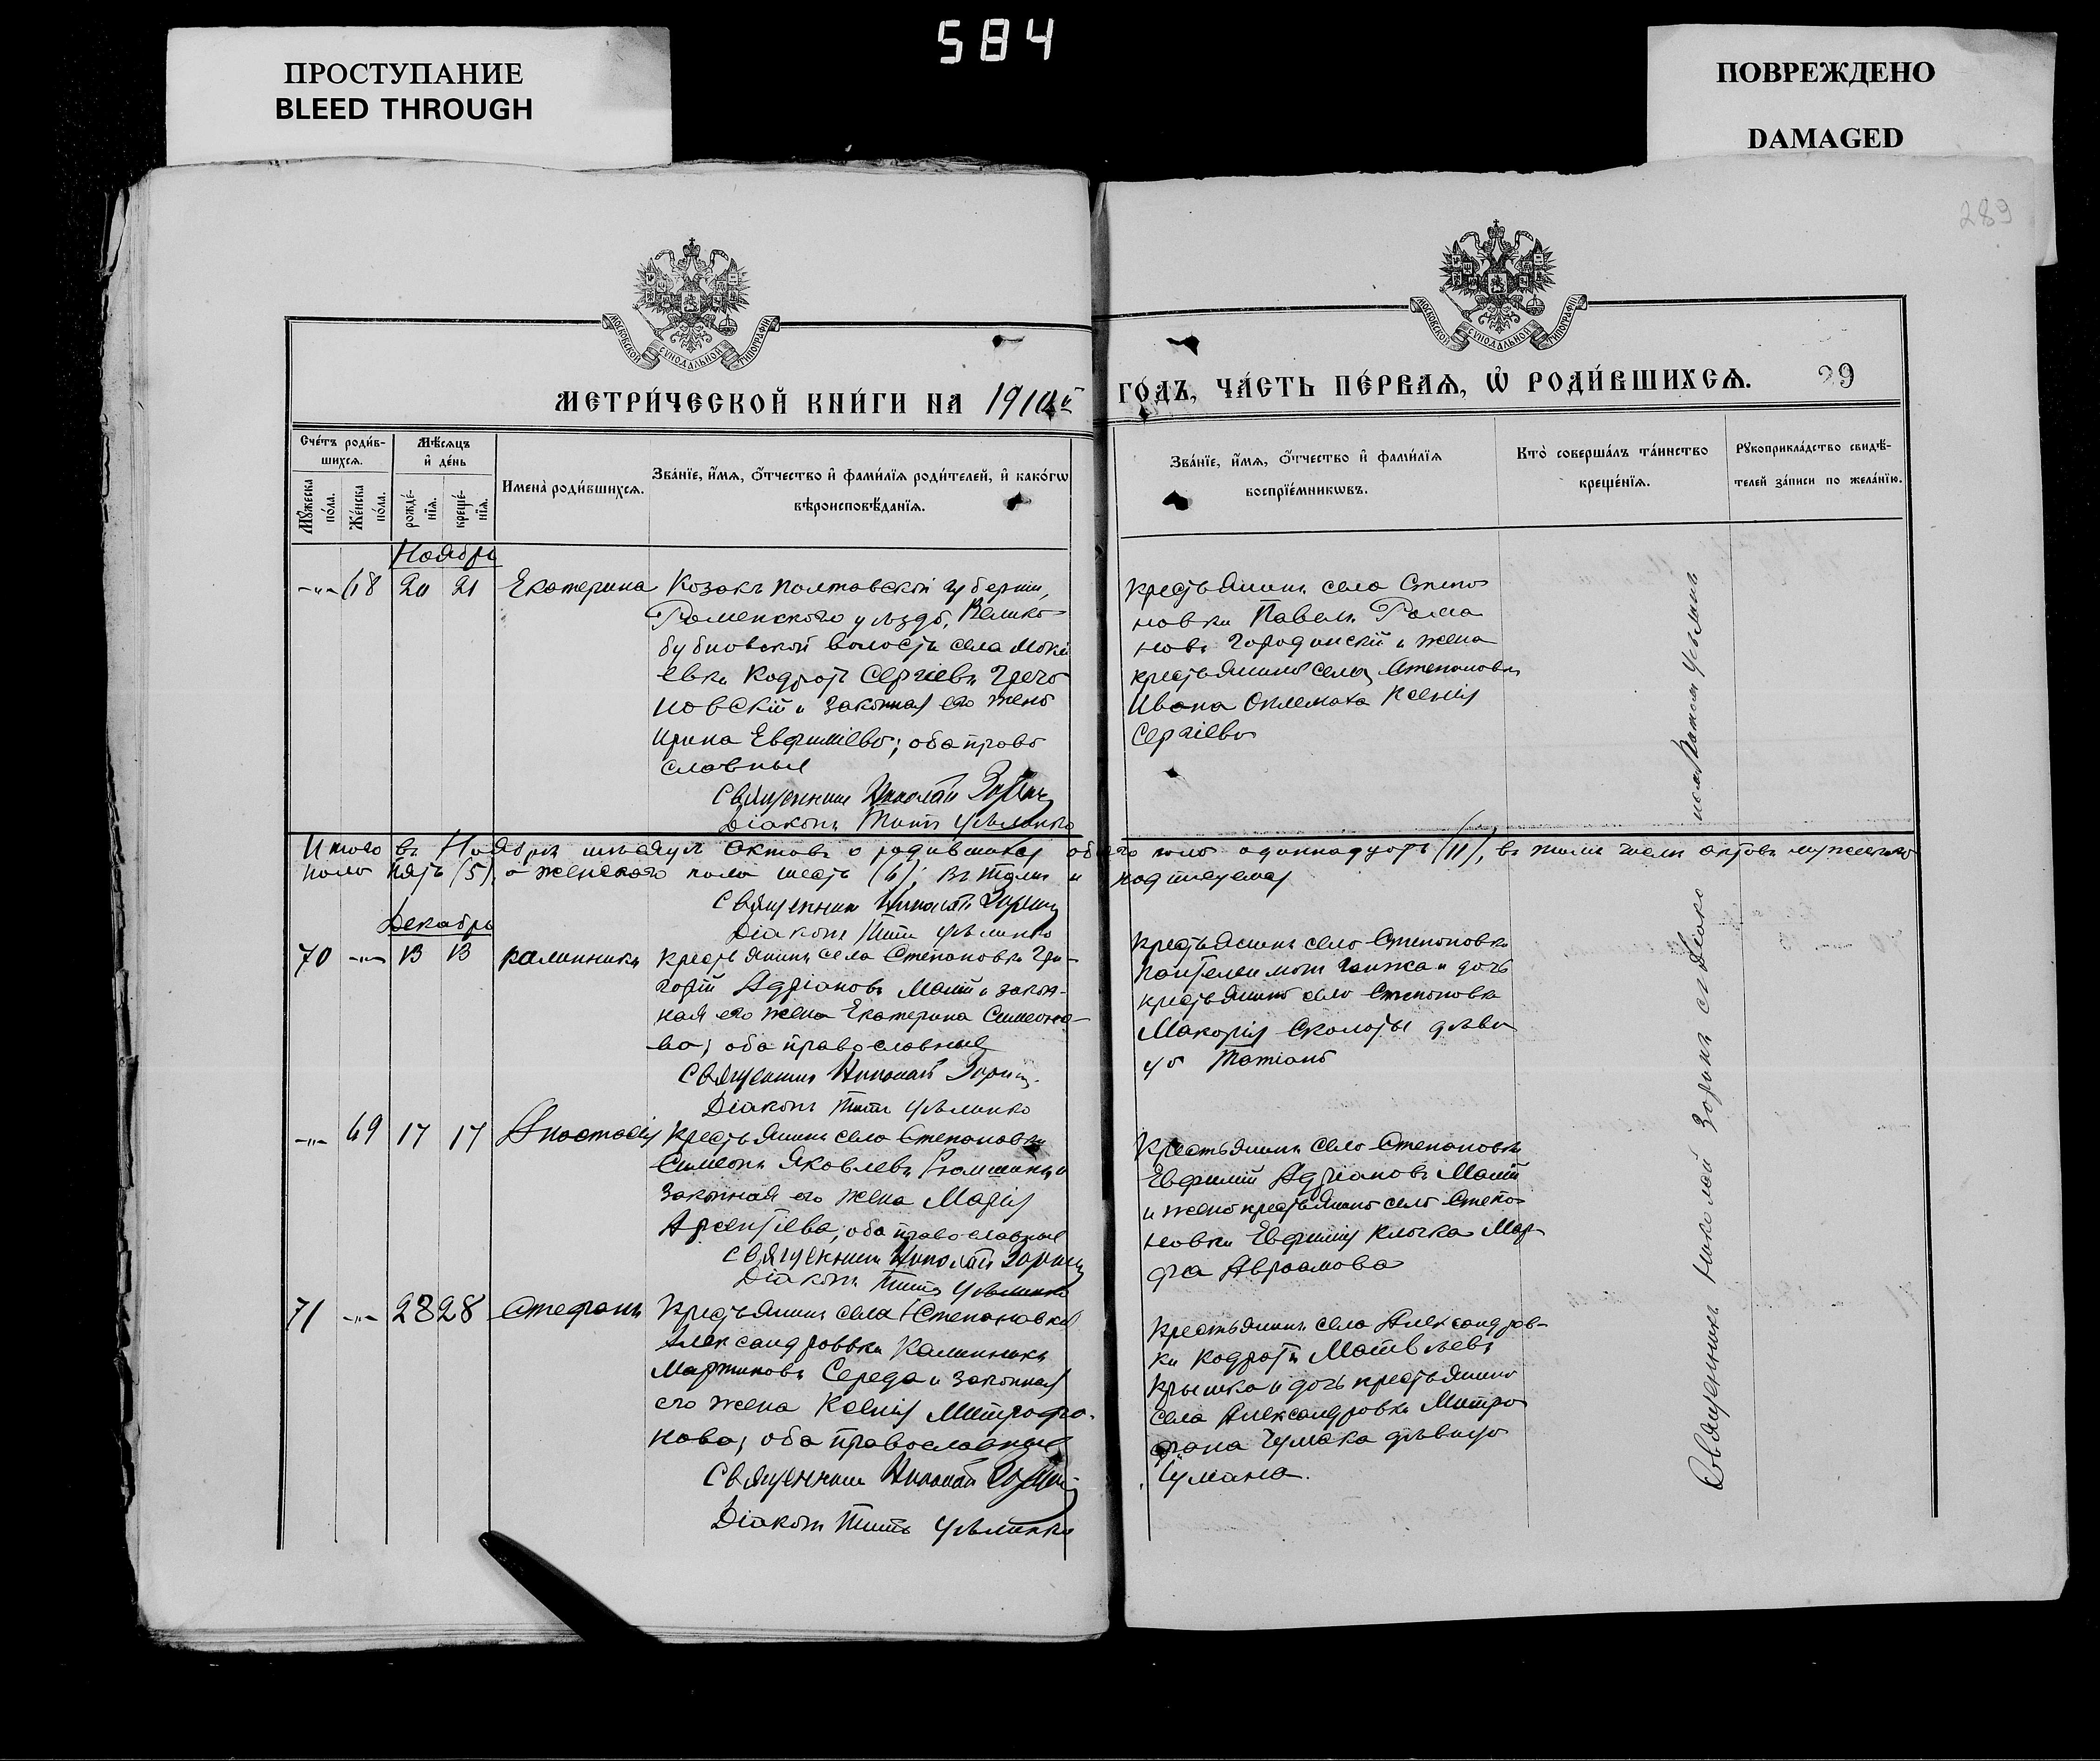 584
ПРОСТУПАНИЕ
BLEED THROUGH
ПОВРЕЖДЕНО
DAMAGED
289
МОСКОВСКОЙ СУНОДАЛЬНОЙ ТИПОГРАФІИ
МОСКОВСКОЙ СУНОДАЛЬНОЙ ТИПОГРАФІИ
МЕТРИ́ЧЕСКОЙ КНИ́ГИ НА 1910й
ГО́ДЪ, ЧА́СТЬ ПЕ́РВАѦ, Ѡ҆ РОДИ́ВШИХСѦ. 29
Сче́тъ роди́в-
шихсѧ.
Мѣ́сѧцъ
и҆ де́нь
Мꙋ́жеска
по́ла.
Же́нска
по́ла.
рожде́-
нїѧ.
креще́-
нїѧ.
Имена̀ роди́вшихсѧ.
Зва́нїе, и҆́мѧ, ѻ҆́тчество и҆ фами́лїѧ роди́телей, и҆ како́гѡ
вѣроисповѣ́данїѧ.
Зва́нїе, и҆́мѧ, ѻ҆́тчество и҆ фами́лїѧ
воспрїе́мникѡвъ.
Кто̀ соверша́лъ та́инство
креще́нїѧ.
Рꙋкоприкла́дство свидѣ́-
телей за́писи по жела́нїю.
Ноябрь
-"- 68 20 21 Екатерина
Козакъ Полтавской губерніи,
Роменскаго уѣзда, Велико-
бубновской волости села
Сергіевъ
новскій и законная его жена
Ирина Евфиміева; оба право
славные
Священникъ Николай Зоринъ
Діаконъ Титъ Усленко
Крестьянинъ села Степа
новки Павелъ Рома
новъ Городинскій и жена
крестьянина села Степановки
Ивана Ксенія
Сергіева
Итого въ Ноябрѣ мѣсяцѣ актовъ о родившихся обоего пола одиннадцать (11), въ томъ числѣ актовъ мужеского
пола пять (5), а женскаго пола шесть (6); въ томъ и подписуемся
Священникъ Николай Зоринъ
Діаконъ Титъ
Декабрь
70 -"- 13 13 Калинникъ
Крестьянинъ села Степановки Гри-
горій Адріановъ Малій и закон-
ная его жена Екатерина Симеоно-
ва; оба православные
Священникъ Николай Зоринъ
Діаконъ Титъ
Крестьянинъ села Степановки
Пантелеимонъ и дочь
крестьянина села Степановки
Макарія Сколоты дѣви
ца Татіана
-"- 69 17 17 Анастасія
Крестьянинъ села Степановки
Симеонъ Яковлевъ
законная его жена Марія
Арсентіева; оба православные
Священникъ Николай Зоринъ
Діаконъ Титъ
Крестьянинъ села Степановки
Евфимій Адріановъ Малій
и жена крестьянина села Степа-
новки Евфимія Клочка Мар-
фа Авраамова
71 -"- 28 28 Стефанъ
Крестьянинъ села Степановки
Александровки Калинникъ
Мартиновъ Середа и законная
его жена Ксенія Митрофа-
нова; оба православные
Священникъ Николай Зоринъ
Діаконъ Титъ
Крестьянинъ села Александров-
ки Кодратъ Матвѣевъ
Крышка и дочь крестьянина
села Александровки Митро
фана Чумака дѣвица
Священникъ Николай Зоринъ съ Діако